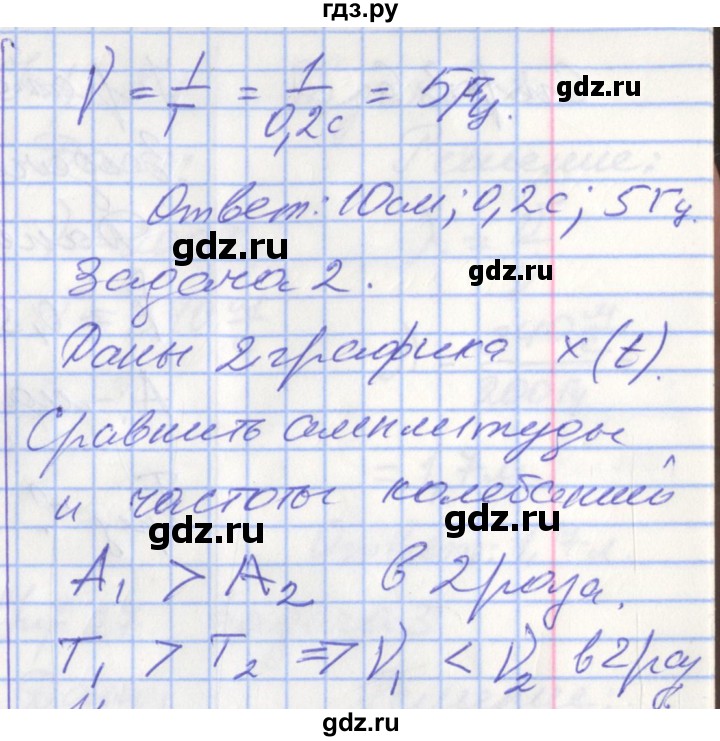 гдз.ру
ν = 1/T = 1/0,2с = 5Гц.
gdz.ru
Ответ: 10см; 0,2с; 5Гц.
gdz.ru
gdz.ru
Задача 2.
Даны 2 графика x(t).
Сравнить амплитуды
и частоты колебаний
gdz.ru
gdz.ru
A₁ > A₂ в 2 раза.
T₁ > T₂ ⇒ ν₁ < ν₂ в 2 раз
gdz.ru